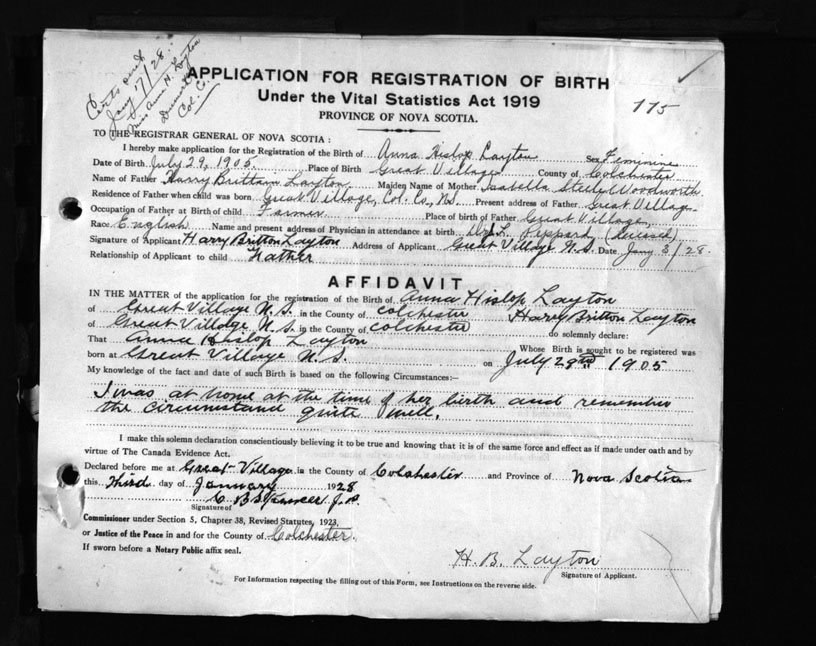 Certs sent
Jany 17/28.
Miss Anna H. Layton
Col. C.
APPLICATION FOR REGISTRATION OF BIRTH
Under the Vital Statistics Act 1919
115
PROVINCE OF NOVA SCOTIA.
TO THE REGISTRAR GENERAL OF NOVA SCOTIA:
I hereby make application for the Registration of the Birth of Anna Hislop Layton Sex Feminine
Date of Birth July 29, 1905. Place of Birth Great Village County of Colchester
Name of Father Harry Brittain Layton Maiden Name of Mother Isabella Woodworth
Residence of Father when child was born Great Village, Col. Co, NS Present address of Father Great Village
Occupation of Father at Birth of child Farmer Place of birth of Father Great Village,
Race English Name and present address of Physician in attendance at birth Dr. L. Peppard (Deceased)
Signature of Applicant Harry Britton Layton Address of Applicant Great Village N.S. Date Jany 3/28.
Relationship of Applicant to child Father
AFFIDAVIT
IN THE MATTER of the application for the registration of the Birth of Anna Hislop Layton
of Great Village N.S. in the County of Colchester Harry Britton Layton
of Great Village N.S. in the County of Colchester do solemnly declare:
That Anna Hislop Layton Whose Birth is sought to be registered was
born at Great Village N.S. on July 29th 1905
My knowledge of the fact and date of such Birth is based on the following Circumstances:—
I was at home at the time of her birth and remember
the circumstand quite well.
I make this solemn declaration conscientiously believing it to be true and knowing that it is of the same force and effect as if made under oath and by
virtue of The Canada Evidence Act.
Declared before me at Great Village in the County of Colchester and Province of Nova Scotia
this third day of January 1928
C B Spencer J.P.
Signature of
Commissioner under Section 5, Chapter 38, Revised Statutes, 1923,
or Justice of the Peace in and for the County of Colchester.
If sworn before a Notary Public affix seal.
H. B. Layton
Signature of Applicant.
For Information respecting the filling out of this Form, see Instructions on the reverse side.